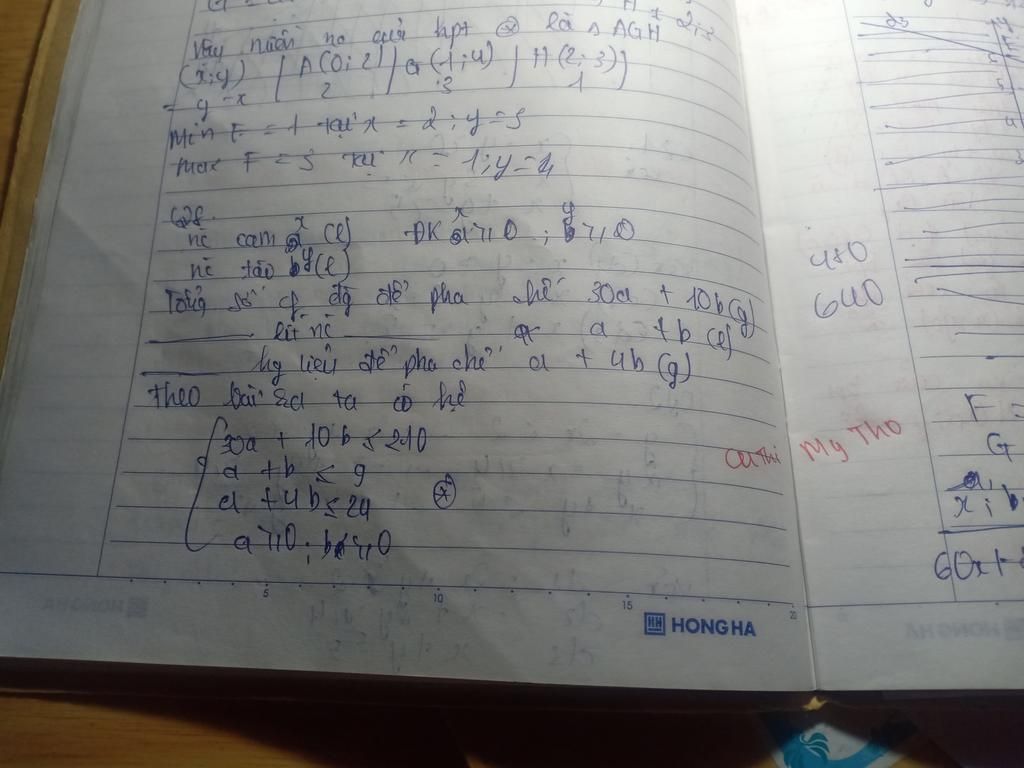 Vậy miền no của hpt ⊛ là △ AGH
(x;y) | A(0;2) | G(-1;4) | H(2;3)
= y-x 2 3 1
Min F = 1 tại x = 2; y = 3
max F = 3 tại x = 1; y = 4
nc cam x (l) ĐK x ≥ 0 ; y ≥ 0
nc táo y (l)
Tổng số g đg để pha chế 30a + 10b (g)
lít nc a + b (l)
hg liệu để pha chế a + 4b (g)
theo bài ra ta có hệ
30a + 10b ≤ 210
a + b ≤ 9
a + 4b ≤ 24
a ≥ 0 ; b ≥ 0
5 10 15 20
HONG HA
480
640
My Tho
F =
G
x ; b
60x +